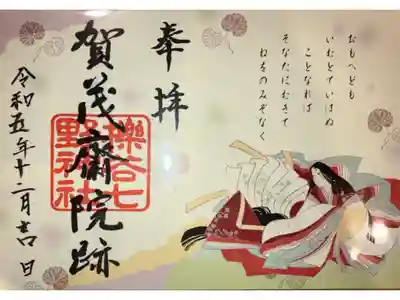 おもへども
いむとていはぬ
ことなれば
そなたにむきて
ねをのみぞなく
奉拝
賀茂齋院跡
櫟谷七
野神社
令和五年十二月吉日